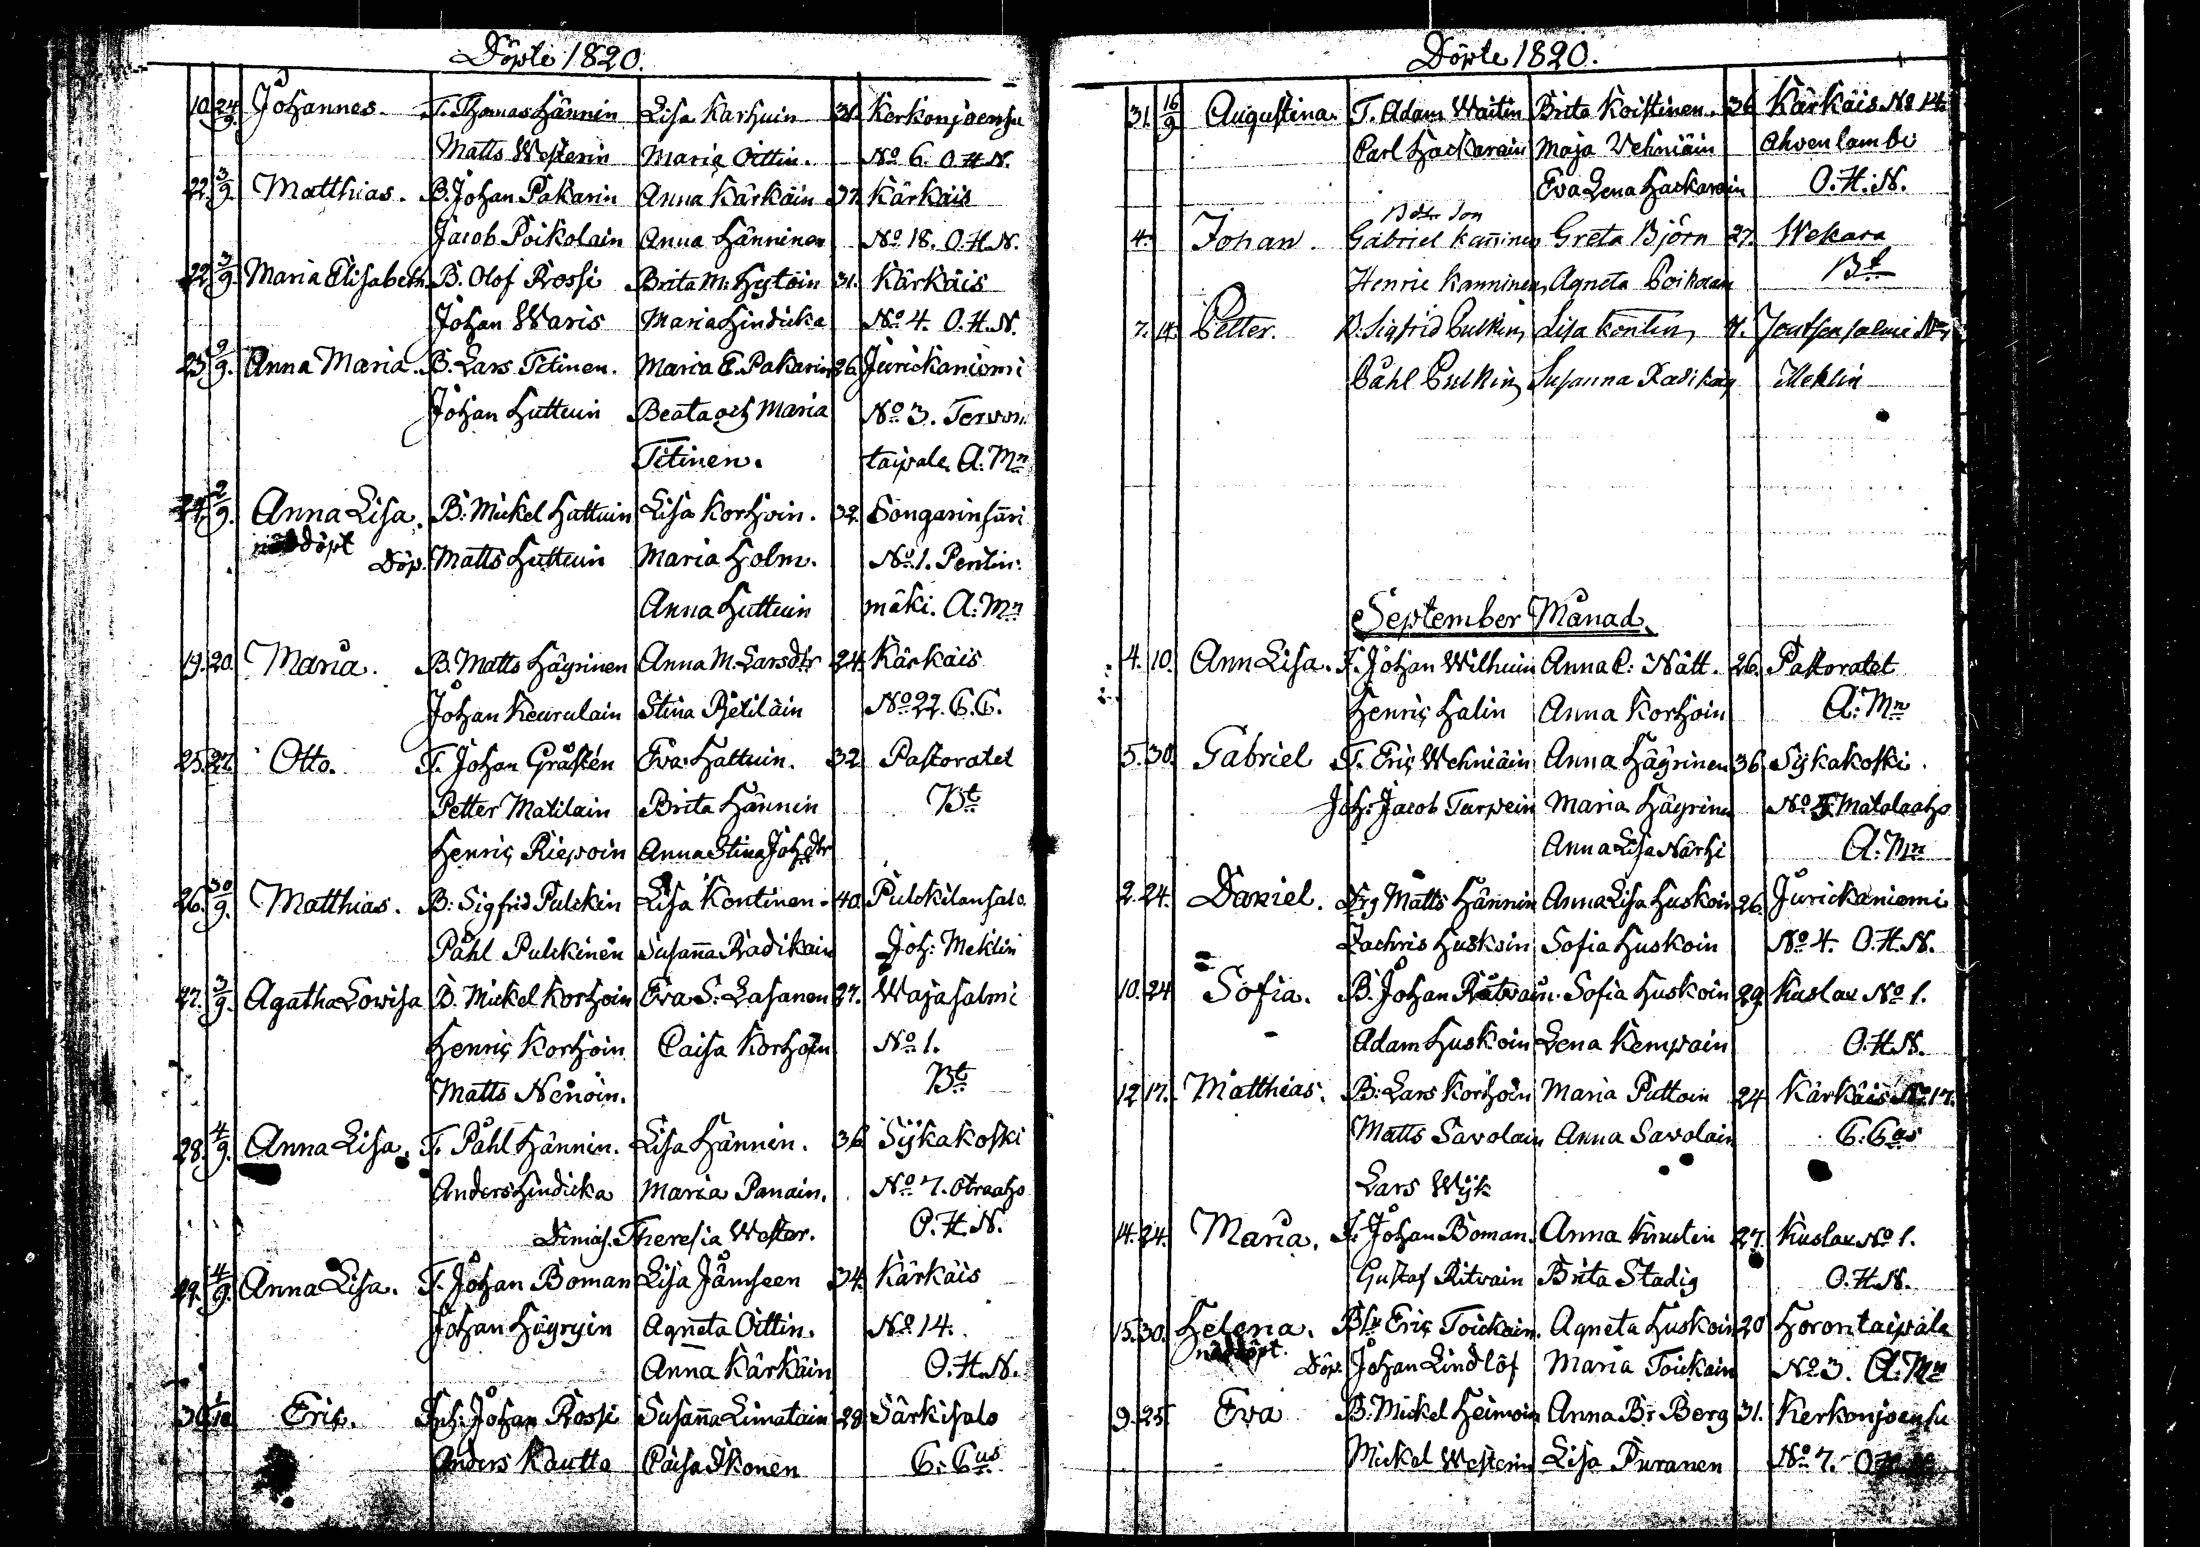 Döpte 1820.
10. 24/9. Johannes. T. Thomas Hännin Lisa Karhuin 31. Kerkonjoensu
Matts Westerin Maria Oittin. No 6. O.H.N.
22. 3/9. Matthias. B. Johan Pakarin Anna Kärkäin 37. Kärkäis
Jacob Poikolain Anna Hänninen No 18. O.H.N.
22. 3/9. Maria Elisabeth B. Olof Rossi Brita M. Hytöin 31. Kärkäis
Johan Waris Maria Hindicka No 4. O.H.N.
23. 9/9. Anna Maria. B. Lars Titinen. Maria E. Pakarin 26. Jurickaniemi
Johan Huttuin Beata och Maria No 3. Tervon
Titinen. taipale. A: Mn
24. 2/9. Anna Lisa. B: Mickel Huttuin Lisa Korhoin. 32. Songarinsari
döpt Döp. Matts Huttuin Maria Holm. No 1. Pentin:
Anna Huttuin mäki. A: Mn
19. 20. Maria. B. Matts Hägrinen Anna M. Larsdtr 24. Kärkäis
Johan Keurulain Stina Pjetiläin No 22. C.C.
25. 27. Otto. T. Johan Gråstén Eva Huttuin. 32 Pastoratet
Petter Matilain Brita Hännin Bt
Henric Riepoin Anna Stina Johdtr
26. 30/9. Matthias. B: Sigfrid Pulckin Lisa Kontinen. 40. Pulckilansalo
Påhl Pulckinen Susanna Radikain Joh: Meklin
27. 3/9. Agatha Lowisa B. Mickel Korhoin Eva S: Lasanen 27. Wajasalmi
Henric Korhoin Caisa Korhoin No 1.
Matts Nenoin. Bt
28. 4/9. Anna Lisa. T. Påhl Hännin. Lisa Hännin. 36. Sijkakoski
Anders Hindicka Maria Panain. No 7. Otraaho
Dimis. Theresia Wester. O.H.N.
29. 4/9. Anna Lisa. T. Johan Boman Lisa Jämseen 34. Kärkäis
Johan Hägryin Agneta Oittin. No 14.
Anna Kärkäin O.H.N.
30. 1/10. Eric. Inh: Johan Rossi Susanna Limatain 28. Särkisalo
Anders Kautto Caisa Ikonen C: Cus
Döpte 1820.
31. 16/9 Augustina. T. Adam Waitin Brita Koistinen. 36 Kärkäis No 14.
Carl Hackarain Maja Vehniäin Ahvenlambi
Eva Lena Hackarain O.H.N.
Bdr Son
4. Johan. Gabriel Kanninen Greta Björn 27. Wekara
Henric Kanninen, Agneta Poikolain Bt
7. 14. Petter. B. Sigfrid Pulkin, Lisa Kontin, Joutsensalmi
Påhl Pulkin, Susanna Radikain Meklin
September Månad.
4. 10. Ann Lisa. T. Johan Wilhuin Anna C: Nätt. 26. Pastoratet
Henric Halin Anna Korhoin A: Mn
5. 30. Gabriel T. Eric Wehniäin Anna Hägrinen 36 Sijkakoski.
Joh: Jacob Tarvein Maria Hägrinen No 5 Matalaaho
Anna Lisa Närhi A: Mn
2. 24. Daniel. Drg Matts Hännin Anna Lisa Huskoin 26. Jurickaniemi
Zachris Huskoin Sofia Huskoin No 4. O.H.N.
10. 24 Sofia. B. Johan Ritvain. Sofia Huskoin 29. Kuslax No 1.
Adam Huskoin Lena Kempain O.H.N.
12. 17. Matthias. B: Lars Korhoin Maria Puttoin 24 Kärkäis No 17.
Matts Savolain Anna Savolain C: Cus
Lars Wijk
14. 24. Maria. T. Johan Boman. Anna Knutin 27. Kuslax No 1.
Gustaf Ritvain Brita Stadig O.H.N.
15. 30. Helena. Bly Eric Toickain. Agneta Huskoin 20 Horontaipale
döpt. Döp. Johan Lindlöf Maria Toickain No 3. A: Mn
9. 25. Eva B: Mickel Heimoin Anna Br Berg 31. Kerkonjoensu
Mickel Westerin Lisa Puranen No 7. O.H.N.